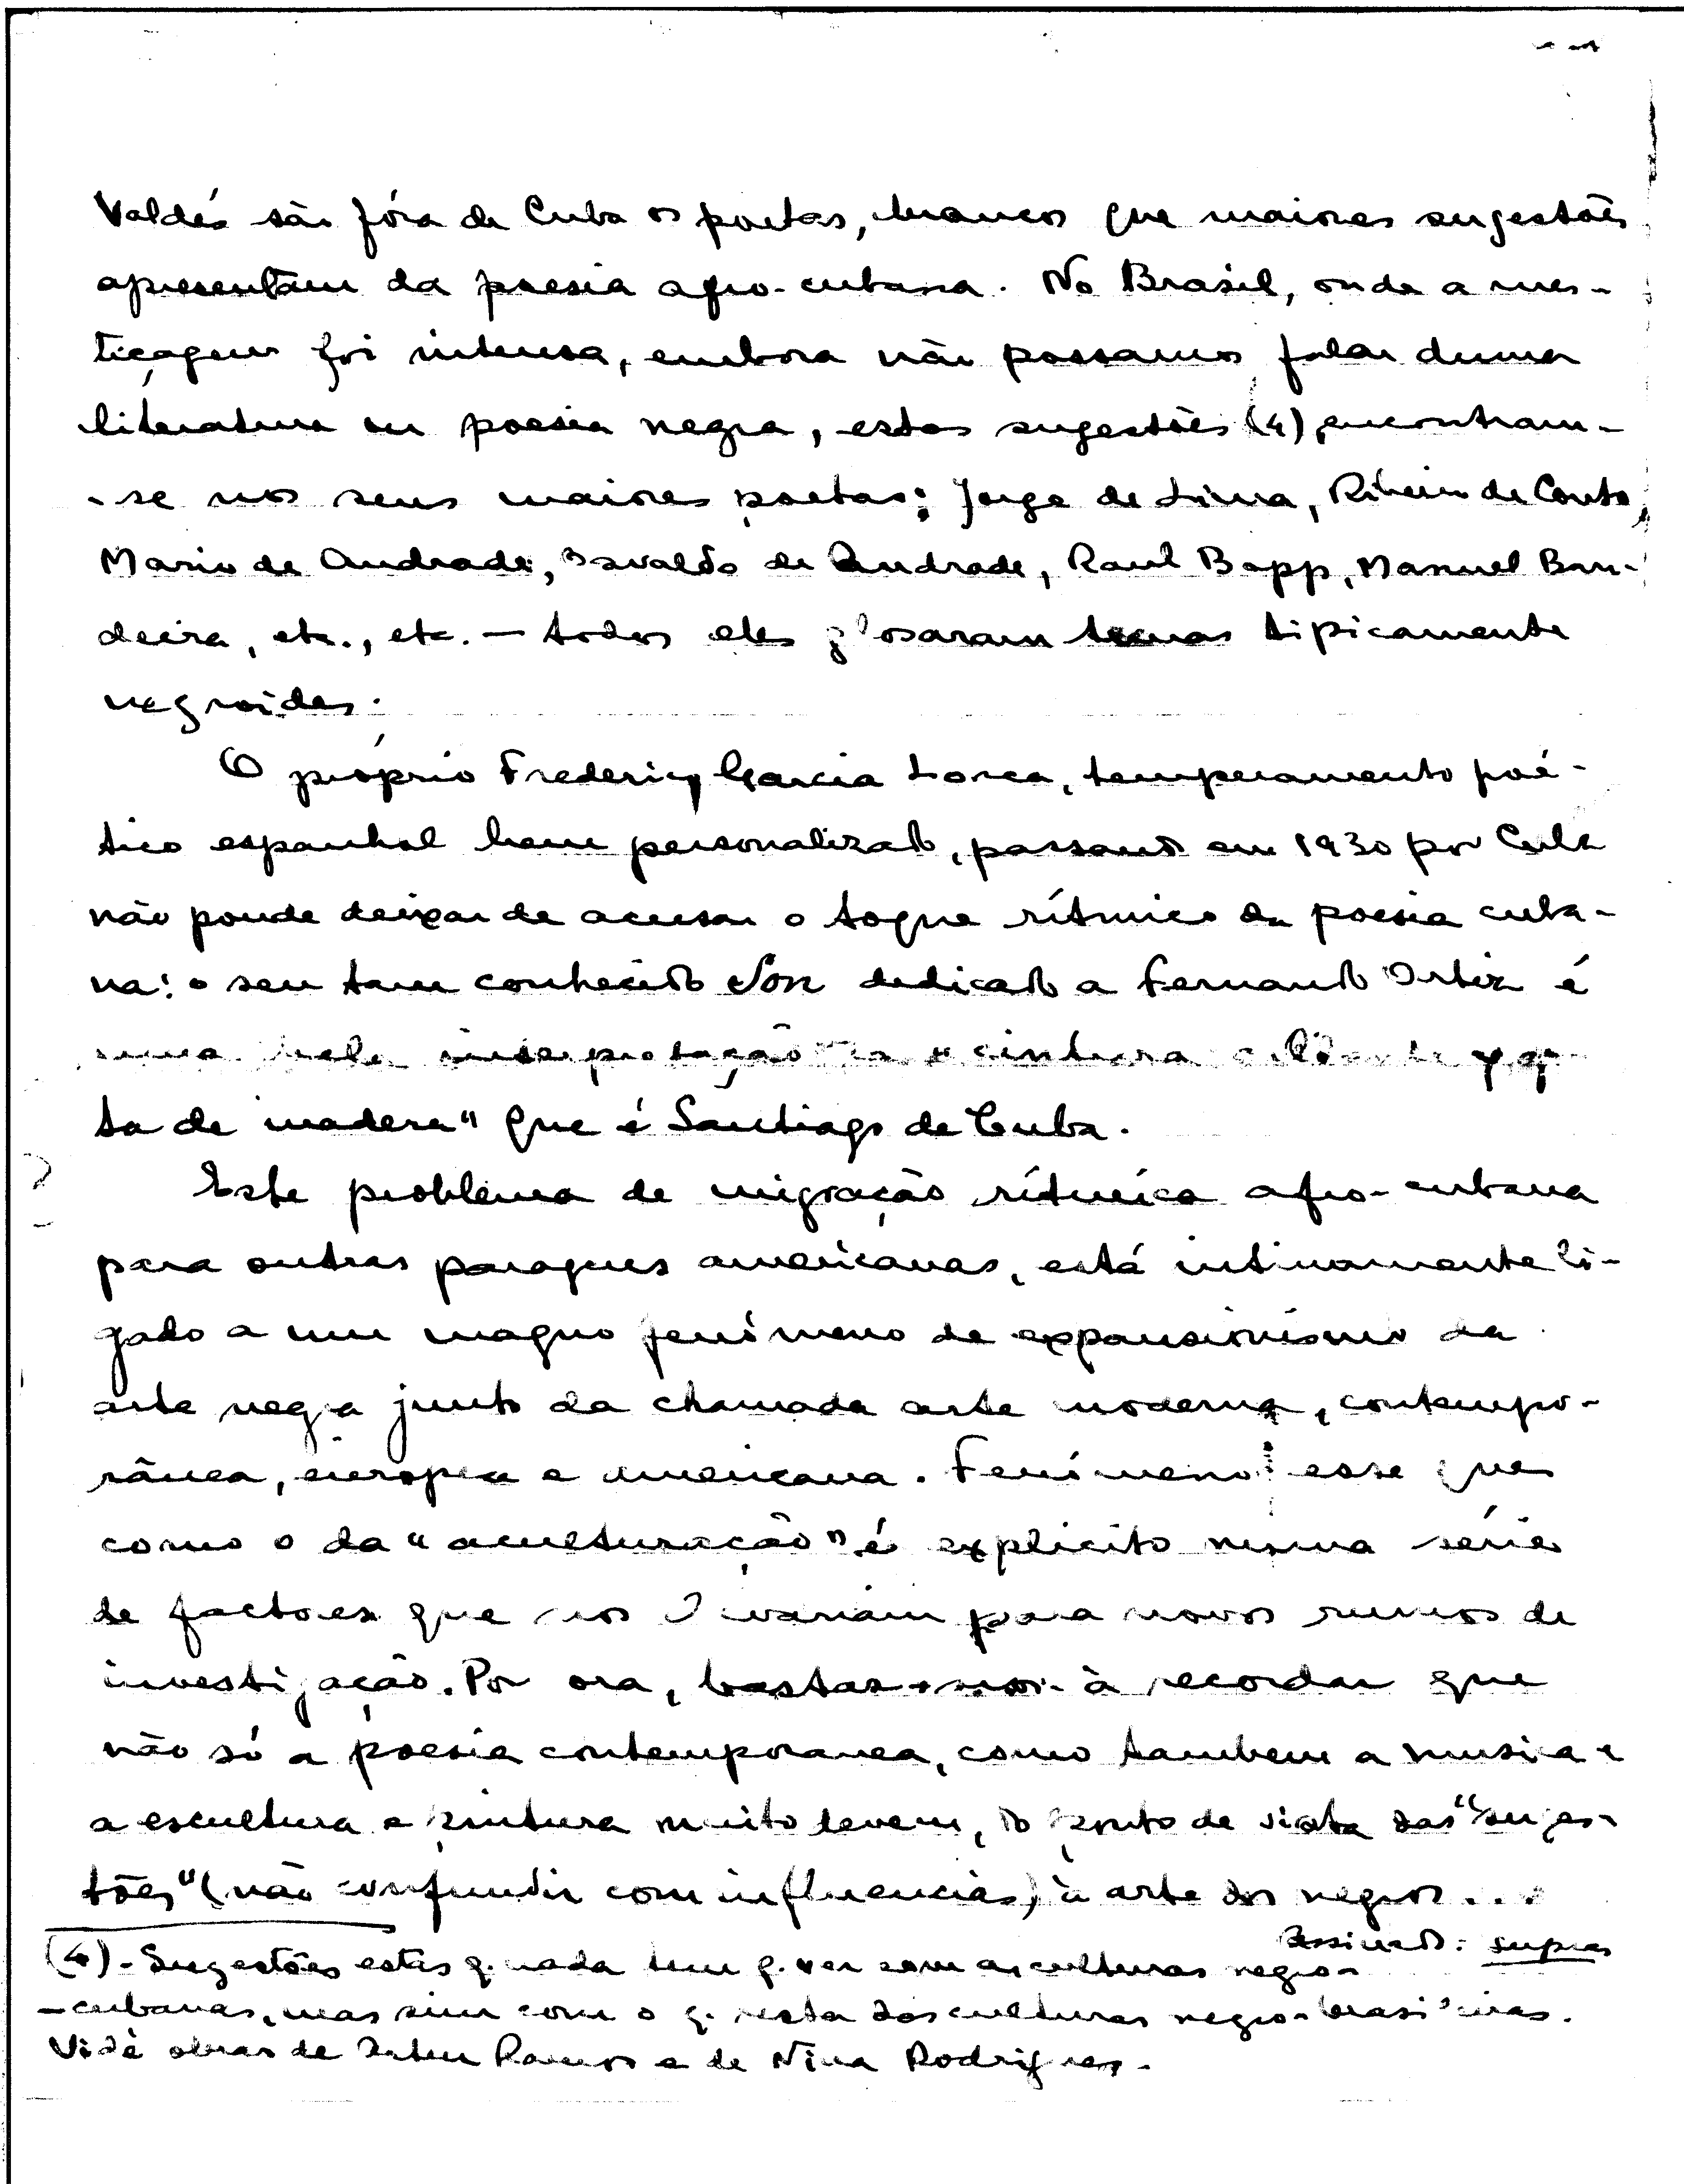 Valdés são fóra de Cuba os poetas, brancos que maiores sugestões
apresentam da poesia afro-cubana. No Brasil, onde a mes-
tiçagem foi intensa, embora não possamos falar duma
literatura ou poesia negra, estas sugestões (4) encontram-
-se nos seus maiores poetas: Jorge de Lima, Ribeiro de Couto,
Mario de Andrade, Osvaldo de Andrade, Raul Bopp, Manuel Ban-
deira, etc., etc. — todos eles glosaram temas tipicamente
negroides.
O próprio Frederico Garcia Lorca, temperamento poé-
tico espanhol bem personalizado, passando em 1930 por Cuba
não poude deixar de acusar o toque rítmico da poesia cuba-
na: o seu tam conhecido Son dedicado a Fernando Ortiz é
uma bela interpretação da "cintura caliente y go-
ta de madera" que é Santiago de Cuba.
Este problema de migração rítmica afro-cubana
para outras paragens americanas, está intimamente li-
gado a um magno fenómeno de expansionismo da
arte negra junto da chamada arte moderna, contempo-
rânea, europea e americana. Fenómeno esse que
como o da "aculturação" é explicito numa série
de factores que nos levariam para novos rumos de
investigação. Por ora, bastar-nos-à recordar que
não só a poesia contemporanea, como tambem a musica e
a escultura e pintura muito devem, do ponto de vista das "suges-
tões" (não confundir com influencias) à arte dos negros...
Assinado: supras
(4) - Sugestões estas q. nada tem q. ver com as culturas negro-
-cubanas, mas sim com o q. resta das culturas negro-brasileiras.
Vidè obras de Artur Ramos e de Nina Rodrigues.